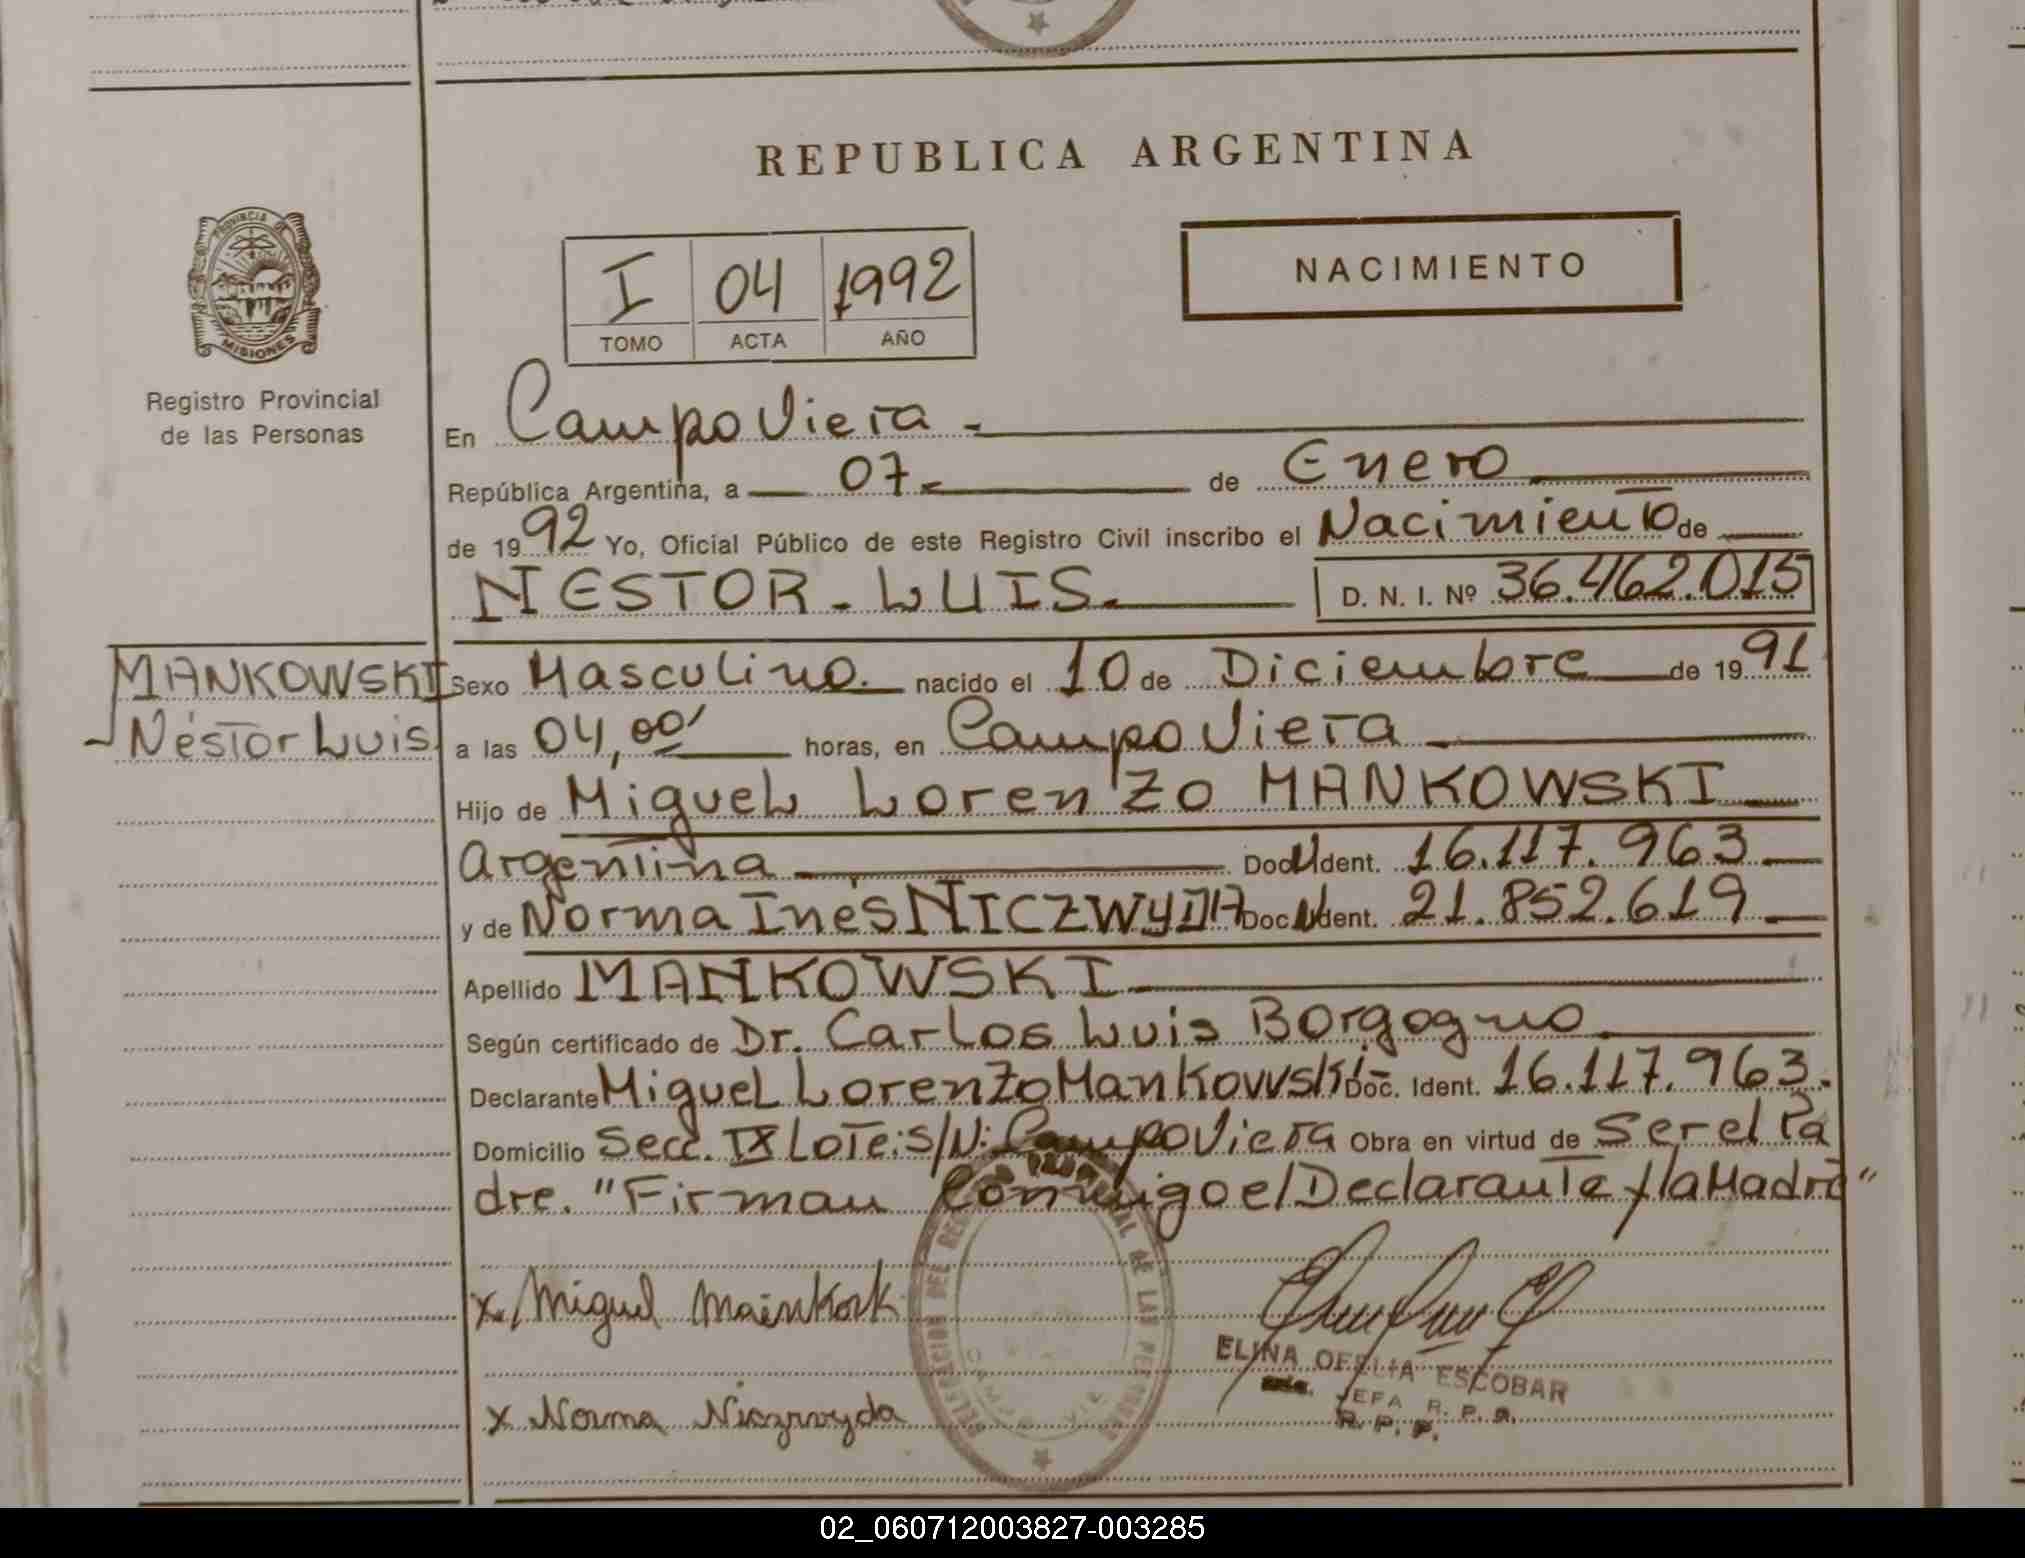 REPUBLICA ARGENTINA
PROVINCIA DE
MISIONES
Registro Provincial
de las Personas
I 04 1992
TOMO ACTA AÑO
NACIMIENTO
En Campo Viera.
República Argentina, a 07. de Enero
de 1992 Yo, Oficial Público de este Registro Civil inscribo el Nacimiento de
NESTOR - LUIS. D. N. I. Nº 36.462.015
MANKOWSKI
Néstor Luis
Sexo Masculino. nacido el 10 de Diciembre de 1991
a las 04,00' horas, en Campo Viera
Hijo de Miguel Lorenzo MANKOWSKI
Argentina Doc. Ident. 16.117.963
y de Norma Inés NICZWYDA Doc. Ident. 21.852.619
Apellido MANKOWSKI
Según certificado de Dr. Carlos Luis Borgogno
Declarante Miguel Lorenzo Mankowski Doc. Ident. 16.117.963.
Domicilio Secc. IX Lote: S/N: Campo Viera Obra en virtud de Ser el Pa
dre. "Firman Conmigo el Declarante y la Madre"
x Miguel
x Norma Niczwyda
ELINA OFELIA ESCOBAR
JEFA R. P. P.
R. P. P.
02_060712003827-003285